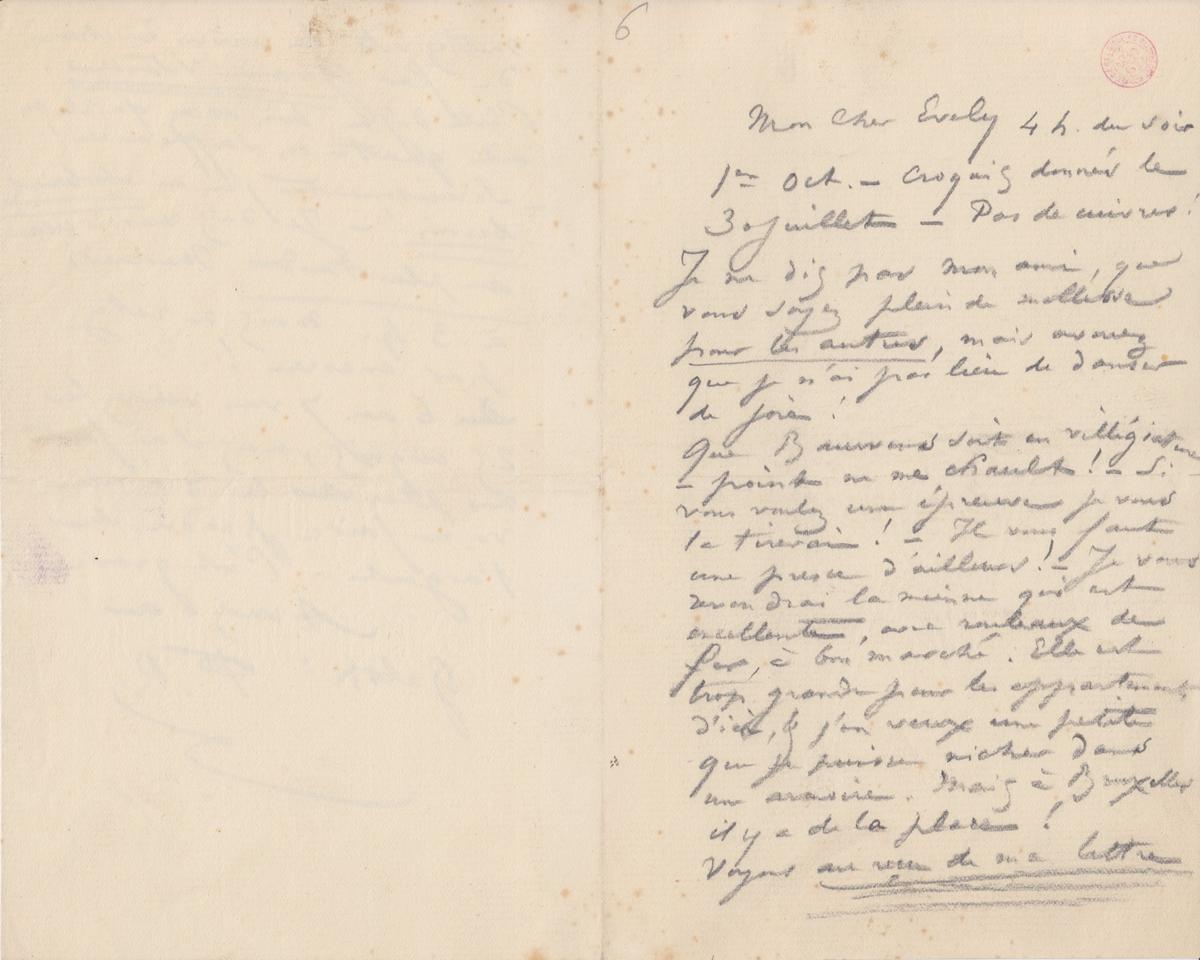 6
Mon Cher Evely 4 h. du soir
1er Oct. — Croquis donnés le
30 Juillet — Pas de cuivres !
Je ne dis pas mon ami, que
vous soyez plein de mollesse
pour les autres, mais avouez
que je n'ai pas lieu de danser
de joie !
Que Bauwens soit en villégiature
— point ne me chault ! — Si
vous voulez une épreuve je vous
la tirerai ! — Il vous faut
une presse d'ailleurs ! — Je vous
revendrai la mienne qui est
excellente, avec rouleaux de
fer, à bon marché. Elle est
trop grande pour les appartements
d'ici, & j'en veux une petite
que je puisse nicher dans
une armoire. Mais à Bruxelles
il y a de la place !
Voyons au reçu de ma lettre